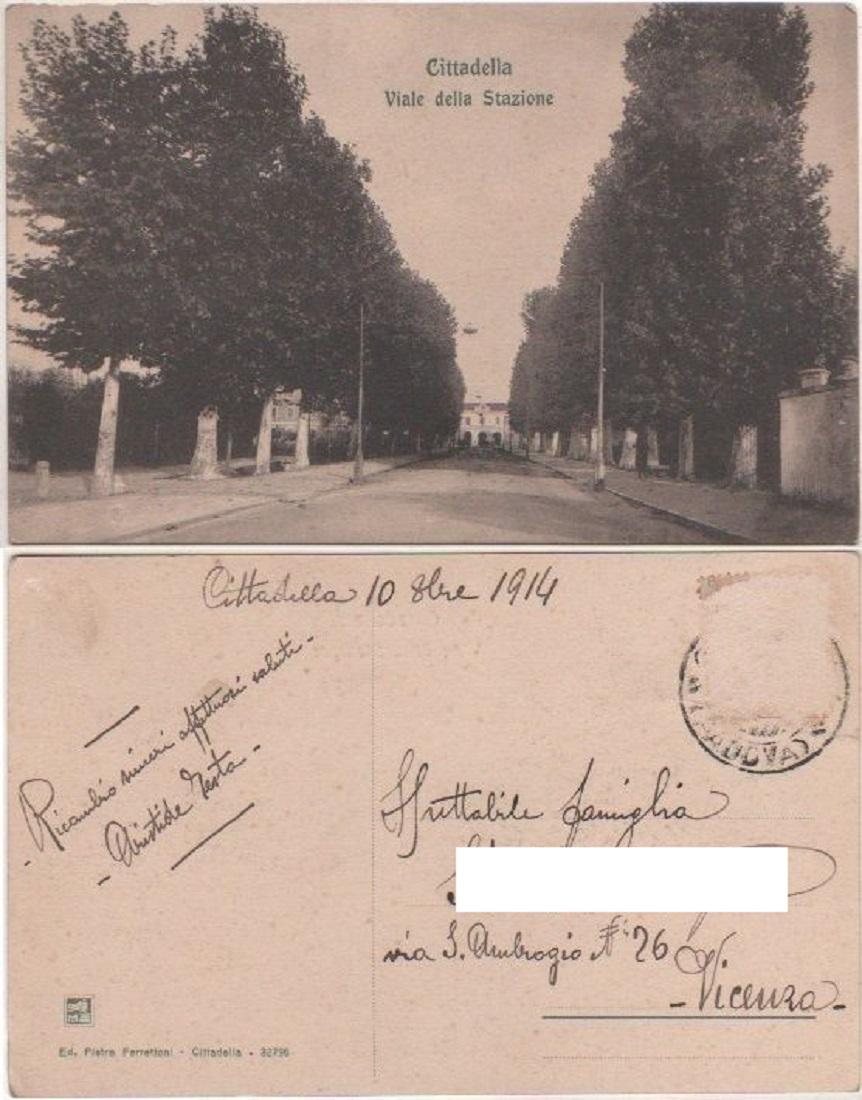 Cittadella
Viale della Stazione
Cittadella 10 8bre 1914
- Ricambio sinceri affettuosi saluti -
- Aristide Testa -
(PADOVA)
Spettabile famiglia
via S. Ambrogio N° 26
- Vicenza -
Ed. Pietro Ferrettoni - Cittadella - 32796